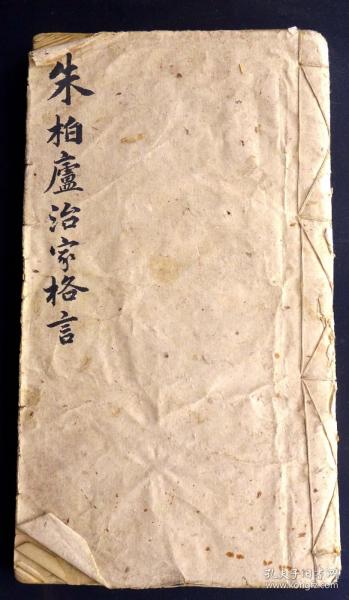 朱柏廬治家格言
孔夫子旧书网
www.kongfz.com